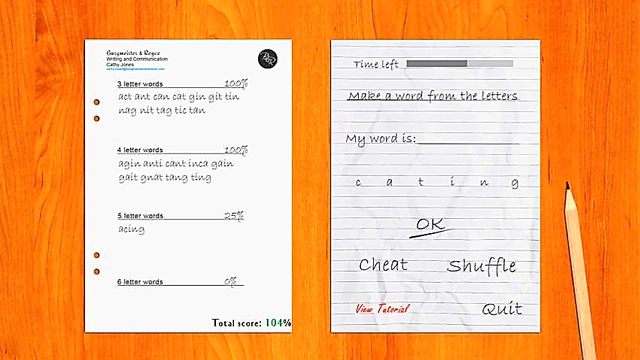 Gurgmeister & Royce
Writing and Communication
Cathy Jones
3 letter words 100%
act ant can cat gin git tin
nag nit tag tic tan
4 letter words 100%
agin anti cant inca gain
gait gnat tang ting
5 letter words 25%
acing
6 letter words 0%
Total score: 104%
Time left
Make a word from the letters
My word is:
c a t i n g
OK
Cheat Shuffle
View Tutorial Quit